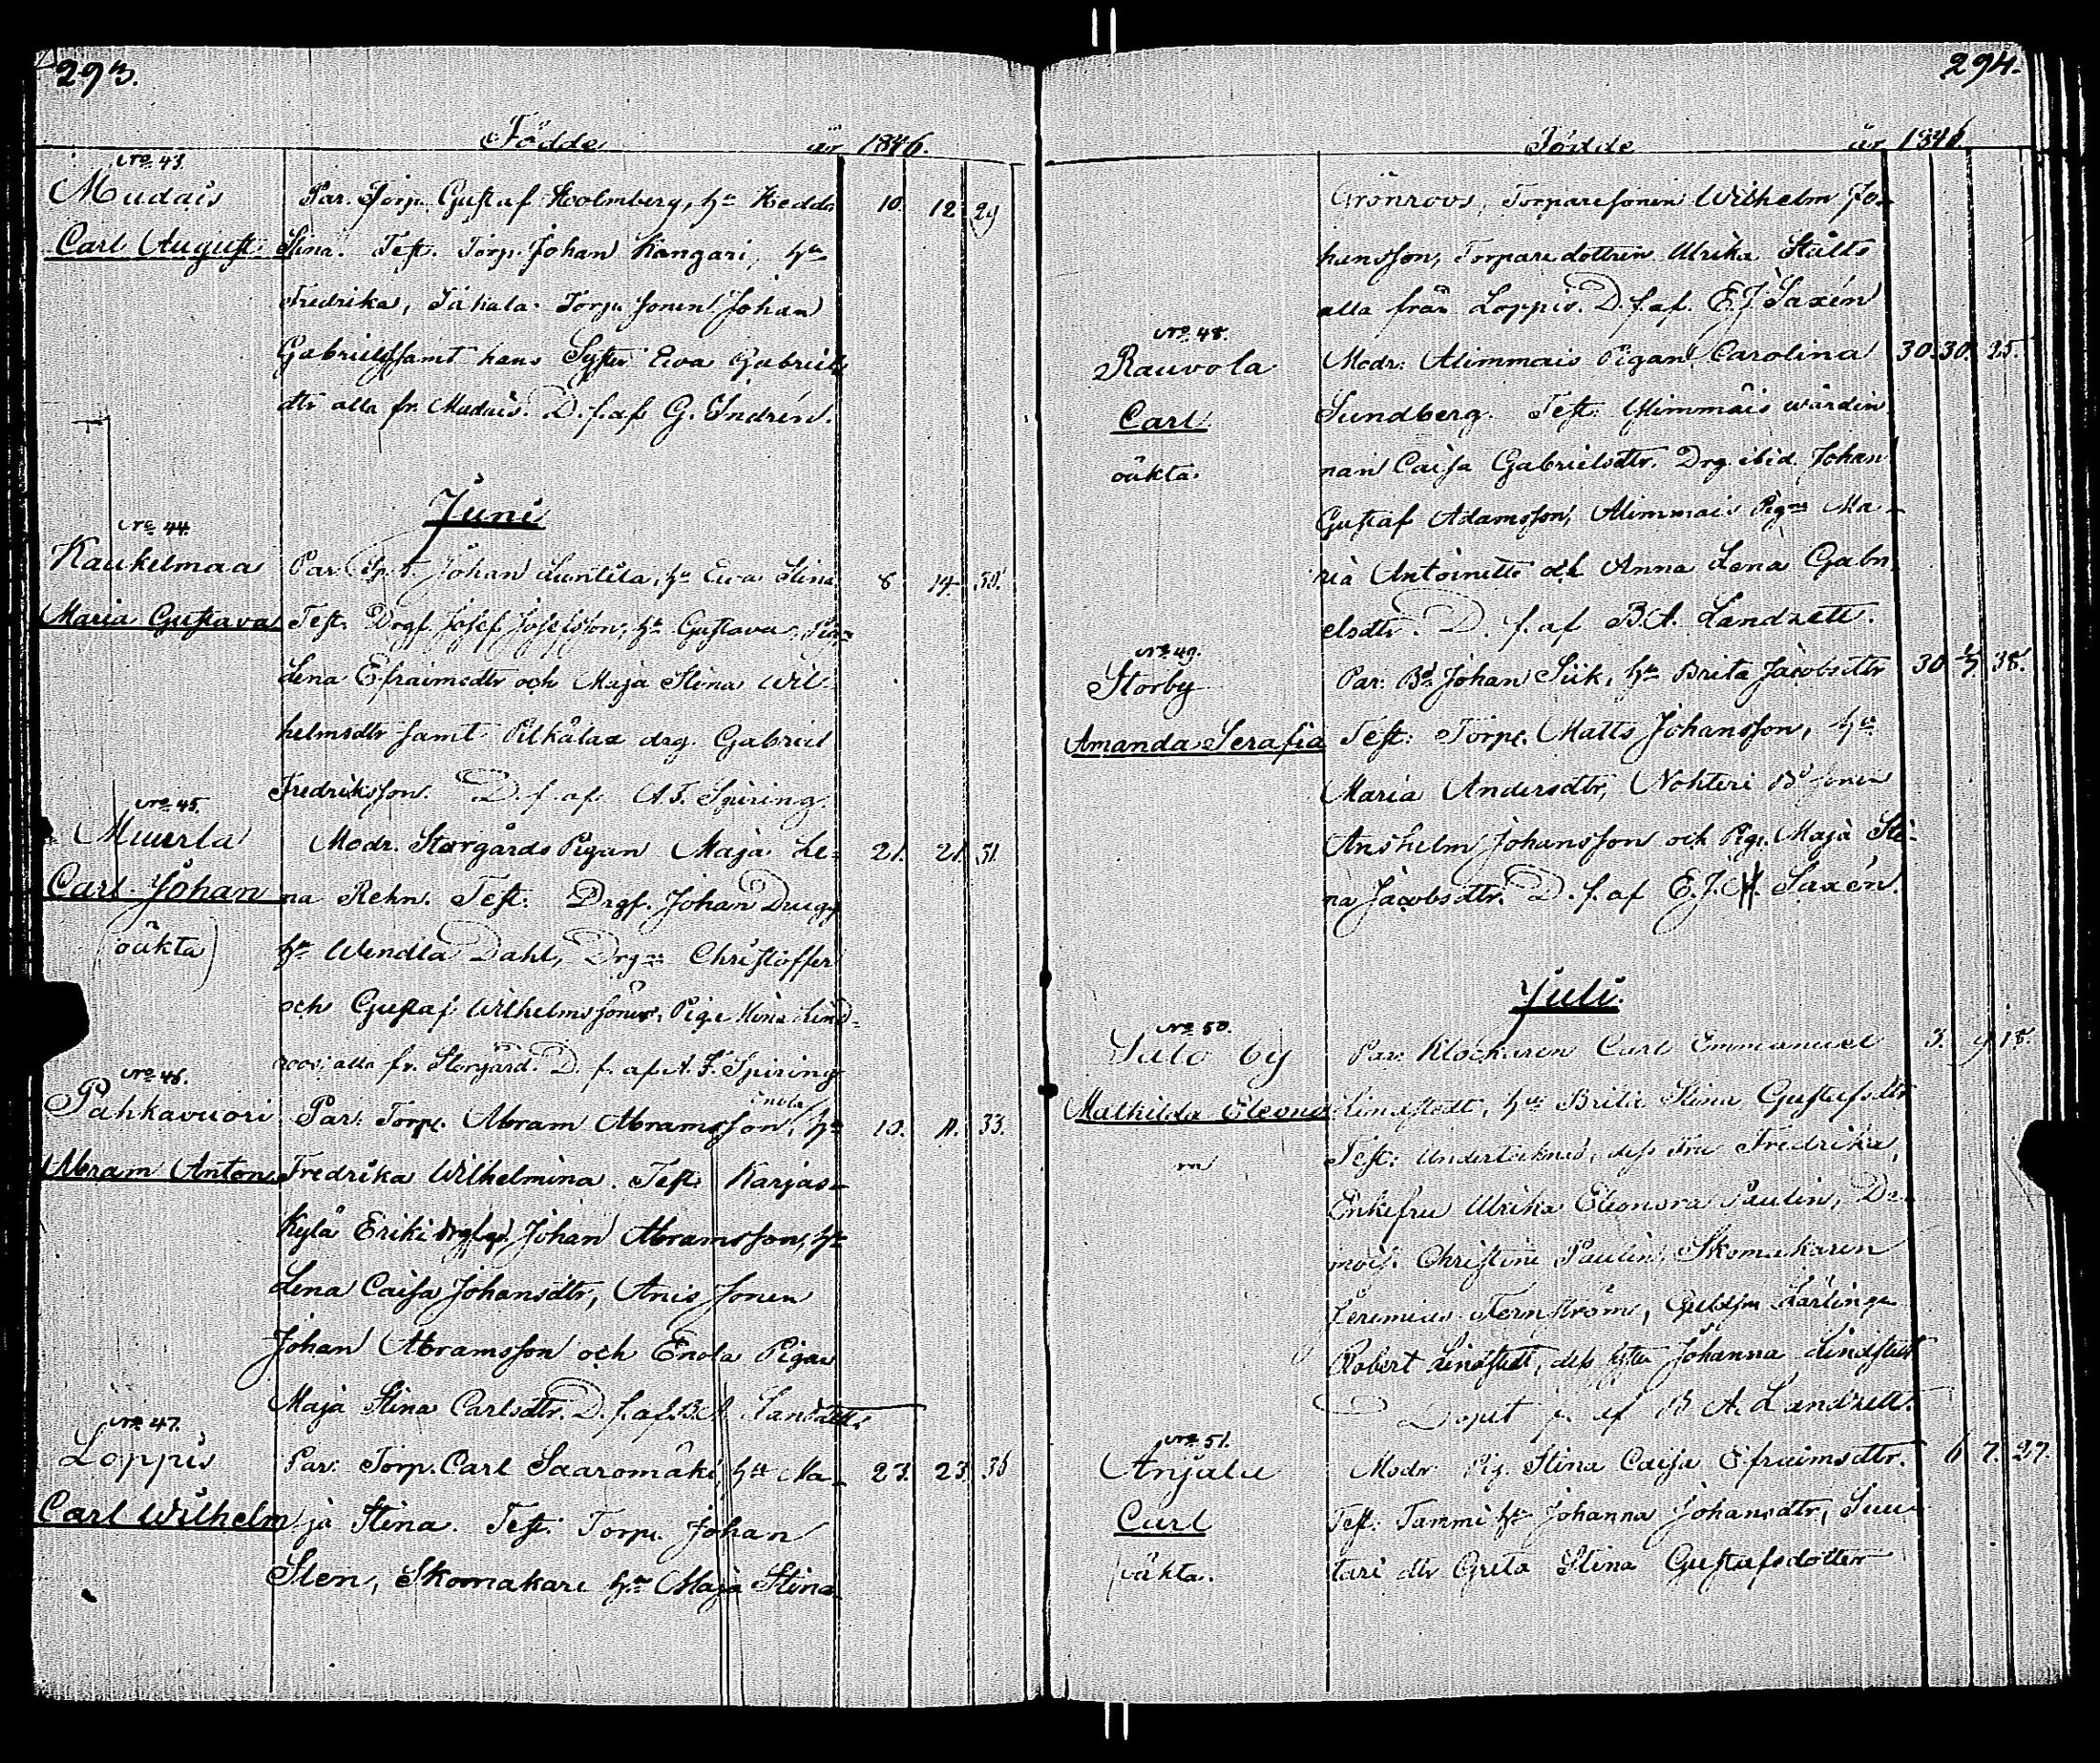 293.
Födde år 1846.
No 43.
Mudais Par. Torp. Gustaf Holmberg, hu Hedda 10. 12 29
Carl August Stina. Test. Torp. Johan Kangari, hu
Fredrika, Torp. sonen Johan
Gabrielss samt hans Syster Eva Gabriels
dtr alla fr. Mudais. D. f. af G. Indrén.
Juni
No 44.
Kaukelmaa Par. Johan Luntila, hu Eva Stina 8 14.
Maria Gustava Test. Drgf. Josef Josefsson, hu Gustava, Pigr
Lena Efraimsdtr och Maja Stina Wil-
helmsdtr samt drg. Gabriel
Fredriksson. D. f. af A. F. Spiring
No 45.
Muurla Modr. Storgårds Pigan Maja Le- 21. 21. 31.
Carl Johan na Rehn. Test. Drgf. Johan Drugg
(oäkta) hu Wendla Dahl, Drgr Christoffer
och Gustaf Wilhelmssöner, Piga Stina Lind-
roos, alla fr. Storgård. D. f. af A. F. Spiring
No 46.
Enola
Pahkavuori Par. Torp. Abram Abramsson, hu 10. 11. 33.
Abram Anton Fredrika Wilhelmina. Test. Karjas-
kylä Eriki Johan Abramsson, hu
Lena Caisa Johansdtr, Anis sonen
Johan Abramsson och Enola Pigan
Maja Stina Carlsdtr. D. f. af B. A. Landzett.
No 47.
Loppis Par. Torp. Carl Saaromäki, hu Ma- 23. 23.
Carl Wilhelm ja Stina. Test. Torp. Johan
Sten, Skomakare hu Maja Stina
294.
Födde år 1846
Grönroos, Torparesonen Wilhelm Jo-
hansson, Torparedottren Ulrika Stålts
alla från Loppis. D. f. af. E. J. Saxén
No 48.
Rauvola Modr: Alimmais Pigan Carolina 30. 30. 25.
Carl Sundberg. Test. Alimmais wärdin
oäkta. nan Caisa Gabrielsdtr. Drg. ibid. Johan
Gustaf Adamsson, Alimmais Pigr Ma-
ria Antoinette och Anna Lena Gabri
elsdtr. D. f. af B. A. Landzett.
No 49.
Storby Par: Bd Johan Siik, hu Brita Jacobsdtr 30 38.
Amanda Serafia Test: Torp. Matts Johansson, hu
Maria Andersdtr, Nohteri Bd sonen
Anshelm Johansson och Pig. Maja Sti-
na Jacobsdtr. D. f. af E. J. Saxén.
Juli.
No 50.
Salo by Par: Klockaren Carl Emmanuel 3. 9 18.
Mathilda Eleono Lindstedt, hu Brita Stina Gustafsdtr
ra Test: Undertecknad, dess Fru Fredrika,
Enkefru Ulrika Eleonora Paulin, De-
mois. Christine Paulin, Skomakaren
Jeremias Fernström, Guldsm. Lärlingen
Robert Lindstedt, dess syster Johanna Lindstedt
Döpet f. af B. A. Landzett.
No 51.
Anjala Modr Pig. Stina Caisa Efraimsdtr. 6 7. 27.
Carl Test. Tammi hu Johanna Johansdtr, Suu
oäkta. tari dtr Greta Stina Gustafsdotter